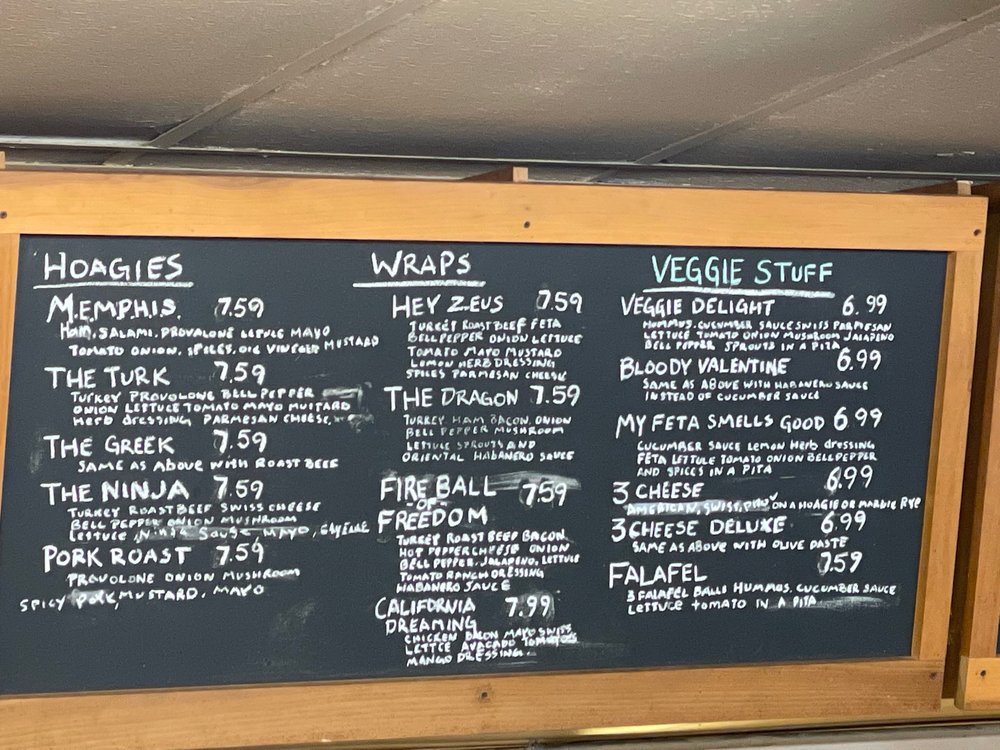 HOAGIES
MEMPHIS. 7.59
HAM, SALAMI, PROVALONE LETTUCE MAYO
TOMATO ONION, SPICES, OIL VINEGER MUSTARD
THE TURK 7.59
TURKEY PROVALONE BELL PEPPER
ONION LETTUCE TOMATO MAYO MUSTARD
HERB DRESSING PARMESAN CHEESE,
THE GREEK 7.59
SAME AS ABOVE WITH ROAST BEEF
THE NINJA 7.59
TURKEY ROAST BEEF SWISS CHEESE
BELL PEPPER ONION MUSHROOM
LETTUCE, NINJA SAUSE, MAYO,
PORK ROAST 7.59
PROVOLONE ONION MUSHROOM
SPICY PORK, MUSTARD, MAYO
WRAPS
HEY ZEUS 7.59
TURKEY ROAST BEEF FETA
BELL PEPPER ONION LETTUCE
TOMATO MAYO MUSTARD
LEMON HERB DRESSING
SPICES PARMESAN CHEESE
THE DRAGON 7.59
TURKEY HAM BACON ONION
BELL PEPPER MUSHROOM
LETTUCE SPROUTS AND
ORIENTAL HABANERO SAUCE
FIRE BALL 7.59
-OF-
FREEDOM
TURKEY ROAST BEEF BACON
HOT PEPPER CHEESE ONION
BELL PEPPER, JALAPENO, LETTUCE
TOMATO RANCH DRESSING
HABANERO SAUCE
CALIFORNIA 7.99
DREAMING
CHICKEN BACON MAYO SWISS
LETTCE AVOCADO TOMATOES
MANGO DRESSING.
VEGGIE STUFF
VEGGIE DELIGHT 6.99
HUMMUS, CUCUMBER SAUCE SWISS PARMESAN
LETTUCE TOMATO ONION MUSHROOM JALAPENO
BELL PEPPER SPROUTS IN A PITA
BLOODY VALENTINE 6.99
SAME AS ABOVE WITH HABANERO SAUCE
INSTEAD OF CUCUMBER SAUCE
MY FETA SMELLS GOOD 6.99
CUCUMBER SAUCE LEMON HERB DRESSING
FETA LETTUCE TOMATO ONION BELL PEPPER
AND SPICES IN A PITA
3 CHEESE 6.99
AMERICAN, SWISS, PROV ON A HOAGIE OR MARBLE RYE
3 CHEESE DELUXE 6.99
SAME AS ABOVE WITH OLIVE PASTE
FALAFEL 7.59
3 FALAFEL BALLS HUMMUS, CUCUMBER SAUCE
LETTUCE TOMATO IN A PITA